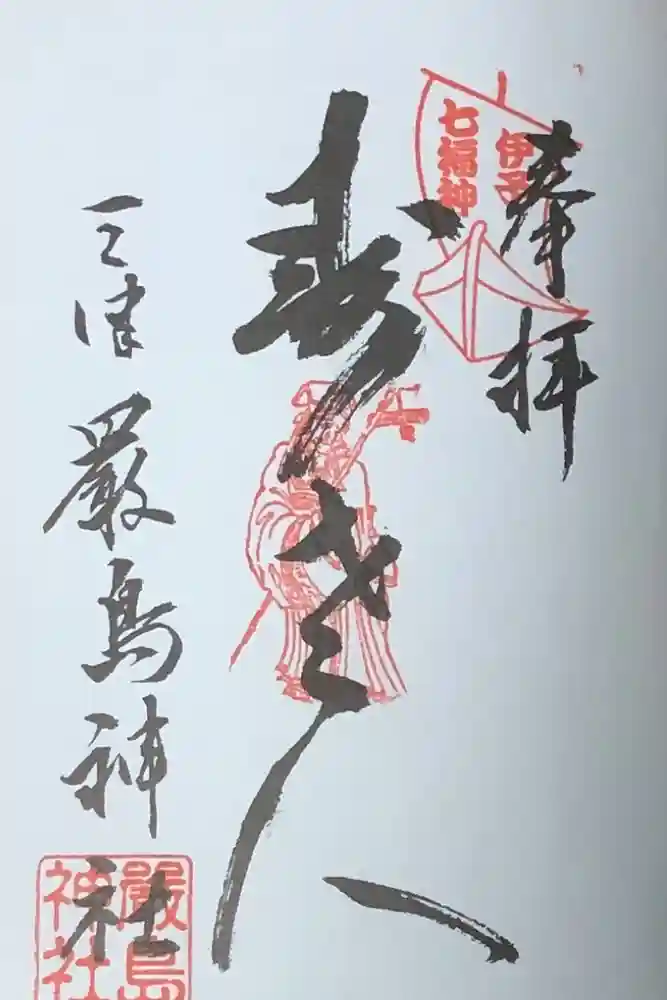 奉拝
伊予
七福神
寿老人
三津
嚴島神社
嚴島
神社